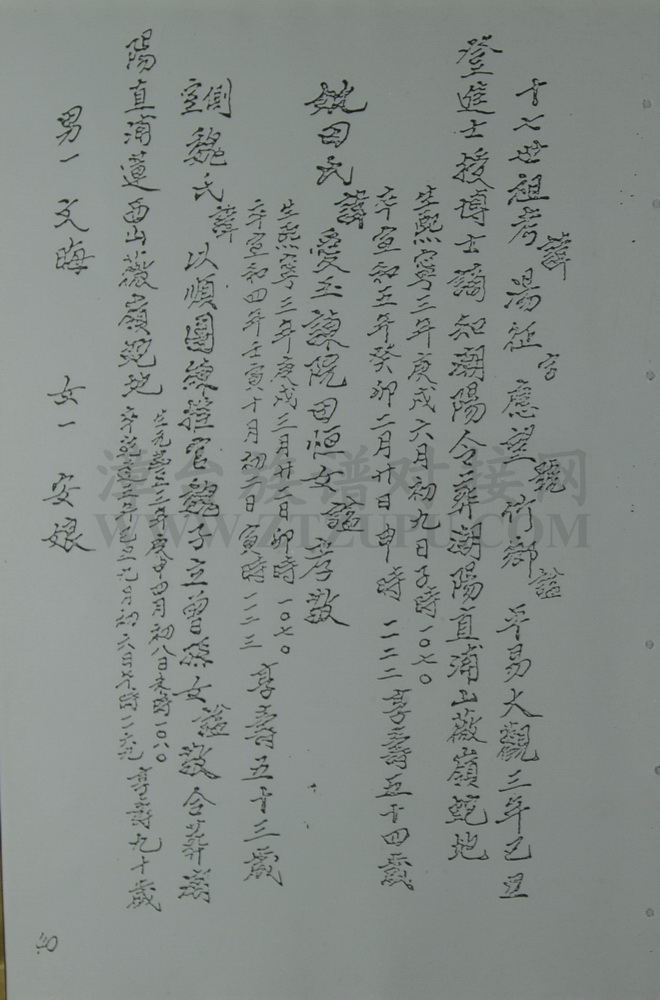 十七世祖考諱湯征字應望號竹鄉謚平易大觀三年己丑
登進士授博士謫知潮陽令葬潮陽直浦山薇嶺
生熙寧三年庚戌六月初九日子時一〇七〇
卒宣和五年癸卯二月廿日申時一一二二享壽五十四歲
妣田氏諱愛玉諫院田恒女謚孝敬
生熙寧三年庚戌三月廿二日卯時一〇七〇
卒宣和四年壬寅十月初二日寅時一一二三享壽五十三歲
側室魏氏諱以順團練推官魏子立曾孫女謚敬合葬潮
陽直浦蓮西山薇嶺
生元豐三年庚申四月初八日未時一〇八〇
卒乾道五年己丑九月初六日午時一一六九享壽九十歲
男一文晦
女一安娘
漳台族谱对接网
WWW.ZTZUPU.COM
40